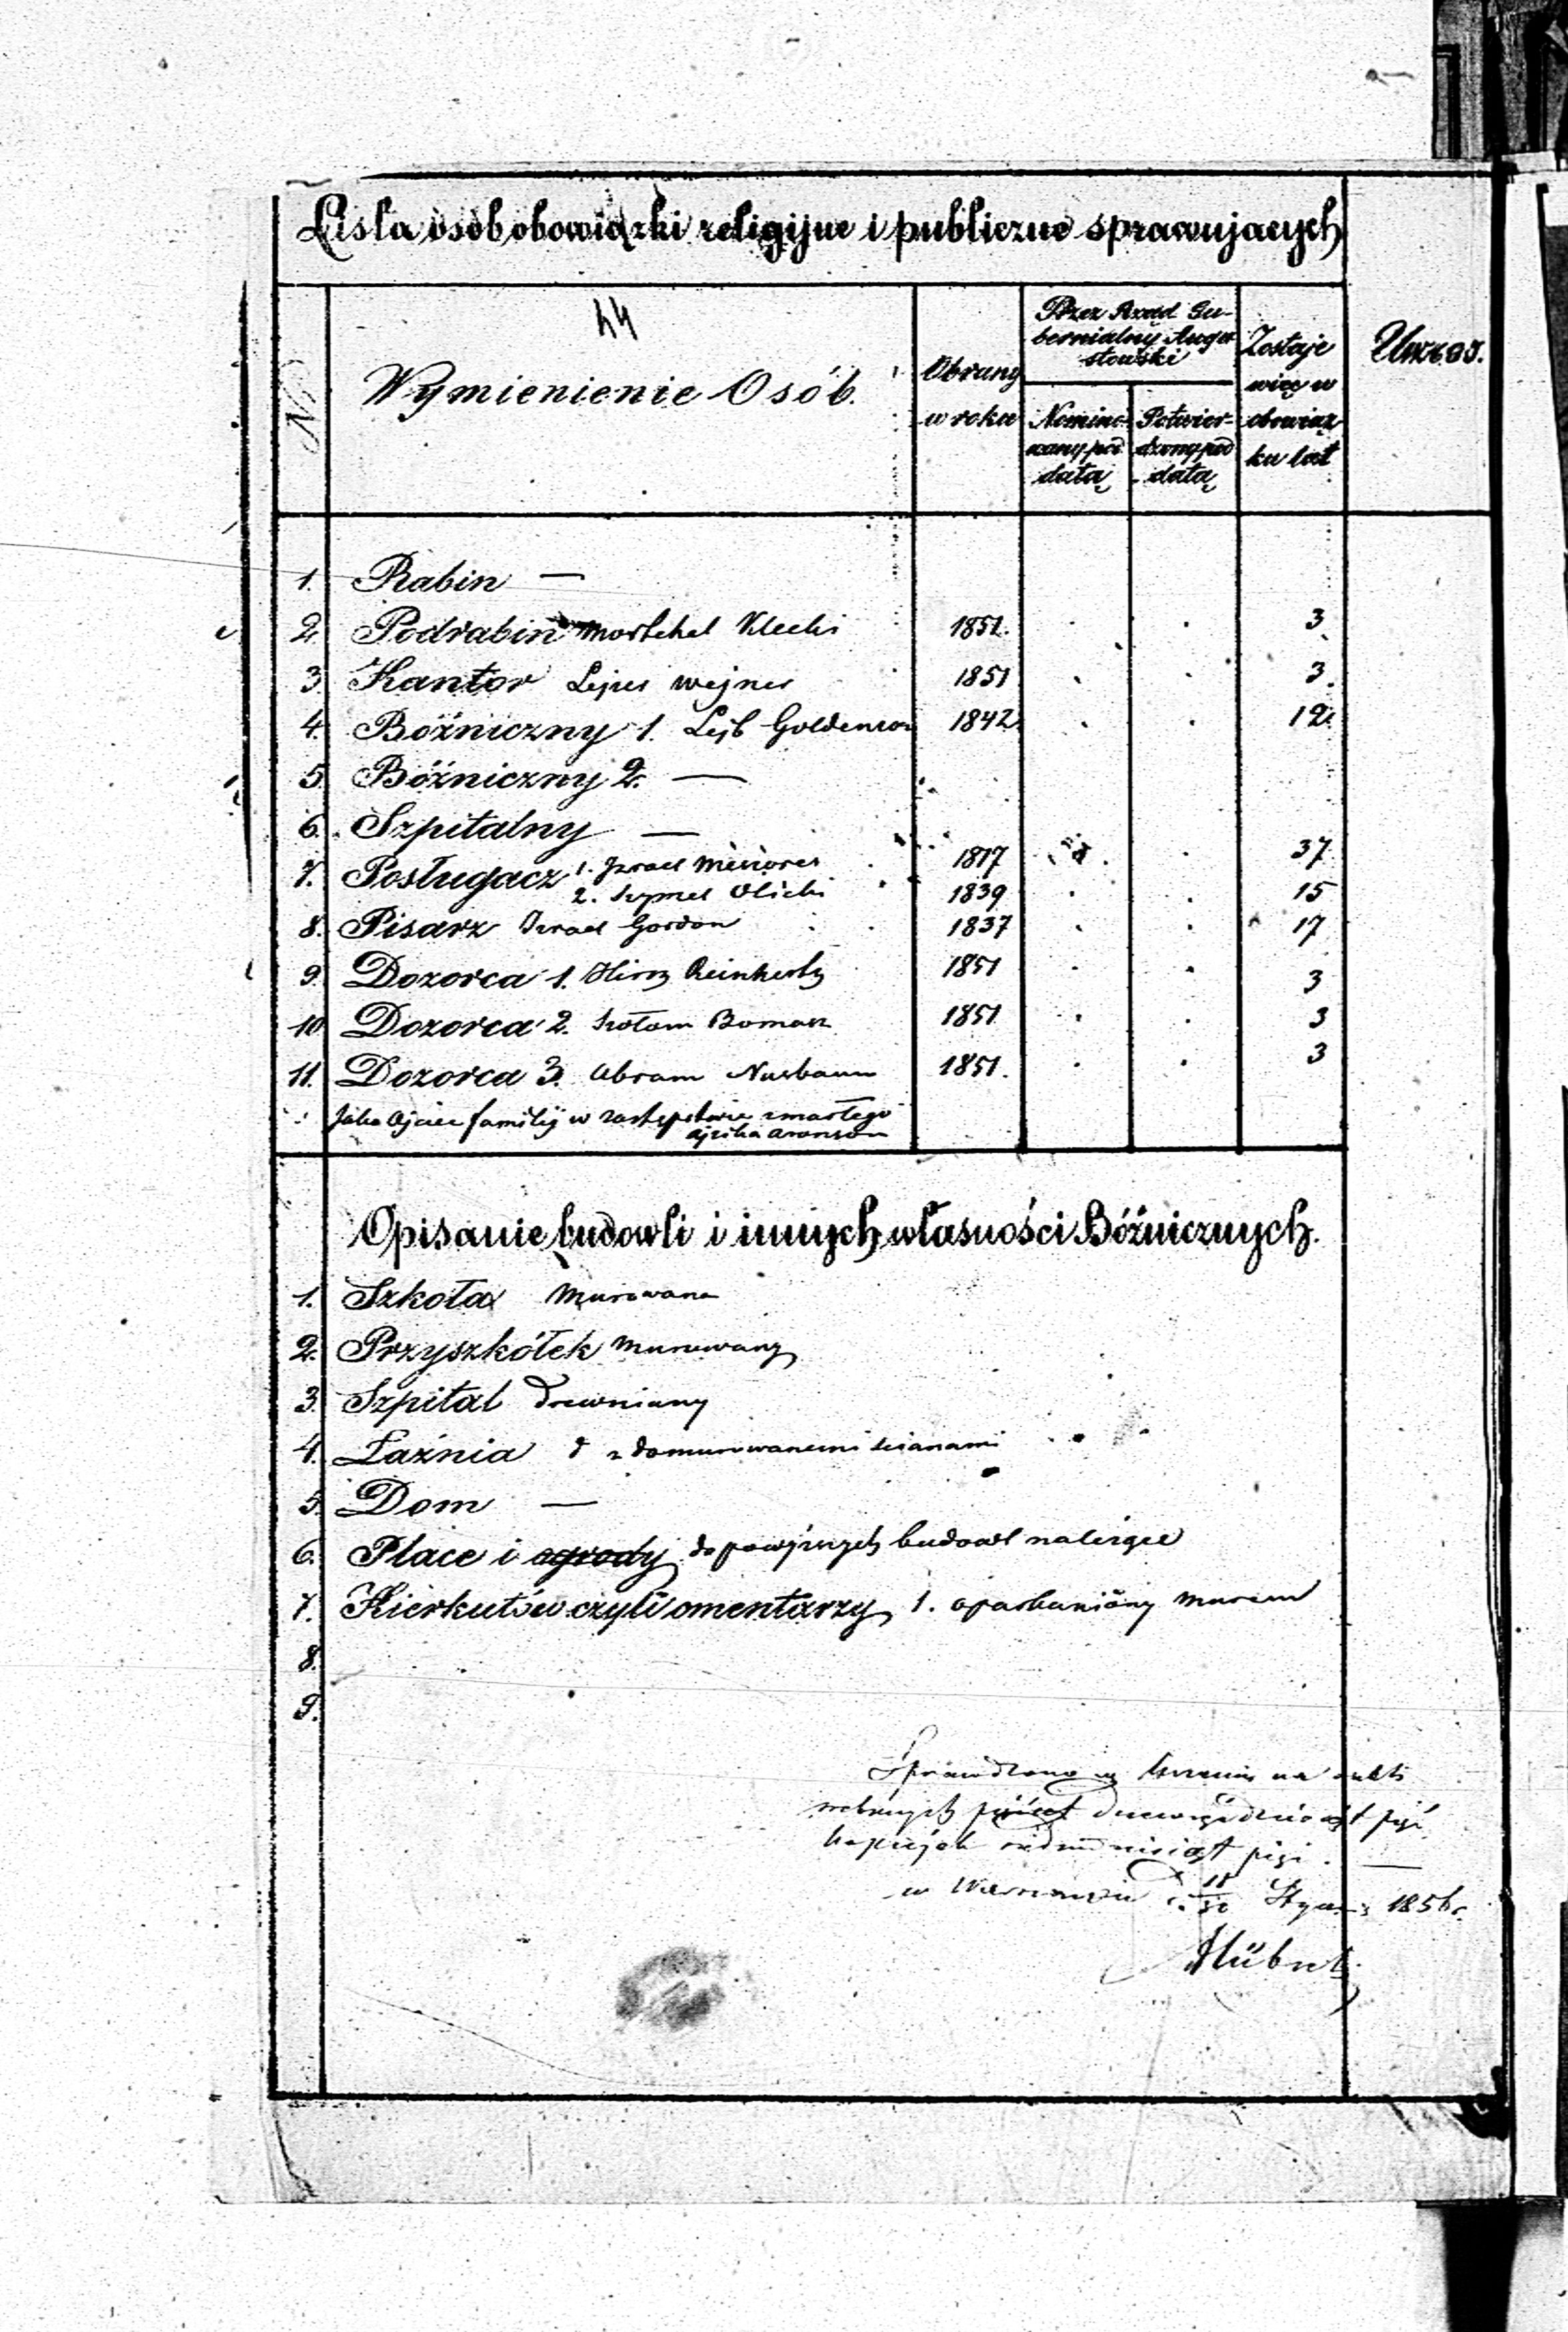 Lista osób obowiązki religijne i publiczne sprawujących
44
N
Wymienienie Osób.
Obrany w roku
Przez Rząd Gubernialny Augustowski
Nominowany pod datą
Potwierdzony pod datą
Zostaje więc w obowiązku lat
1. Rabin —
2. Podrabin Mortchel Klecki 1851. 3
3. Kantor Lejzer Wejner 1851 3.
4. Bóźniczny 1. Lejb 1842 12.
5. Bóźniczny 2. —
6. Szpitalny —
7. Posługacz 1. Izrael 1817 37
2. Szymel Olicki 1839 15
8. Pisarz Izrael Gordon 1837 17
9. Dozorca 1. Hirsz 1851 3
10. Dozorca 2. Szołom Bomasz 1851 3
11. Dozorca 3. Abram Nusbaum 1851. 3
jako Ojciec familij w zastępstwie zmarłego
Ajzika Aronson
Opisanie budowli i innych własności Bóźnicznych.
1. Szkoła Murowana
2. Przyszkółek Murowany
3. Szpital drewniany
4. Łaźnia d z domurowanemi scianami
5. Dom —
6. Place i ogrody do powyższych budowl należące
7. Kierkutów czyli omentarzy 1. oparkaniony murem
8.
9.
Sprawdzono w na
kopiejek pięć. —
w Warszawie d. 18/30 1856 r.
Hübner